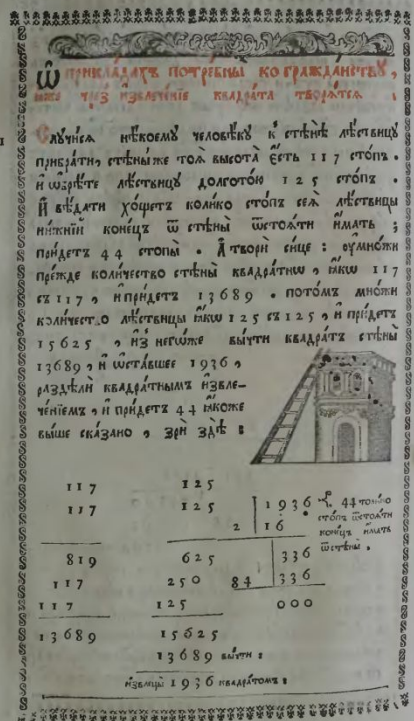 Ѿ прикла́дахъ потре́бныхъ ко гражда́нству,
ꙗ҆̀же чрез̾ и҆звлече́нїе квадра́та творѧ́тсѧ .
Случи́сѧ нѣ́коемꙋ человѣ́кꙋ к̾ стѣнѣ̀ лѣ́ствицꙋ
прибра́ти, стѣны́ же тоѧ̀ высота̀ є҆́сть 117 сто́пъ .
и҆ ѡ҆брѣ́те лѣ́ствицꙋ долгото́ю 125 сто́пъ .
И҆ вѣ́дати хо́щетъ коли́ко сто́пъ сеѧ̀ лѣ́ствицы
ни́жнїй коне́цъ ѿ стѣны̀ ѿстоѧ́ти и҆́мать ;
прїи́детъ 44 стопы̀ . А҆ творѝ си́це : ᲂу҆мно́жи
пре́жде коли́чество стѣны̀ квадра́тнѡ , ꙗ҆́кѡ 117
съ 117 , и҆ прїи́детъ 13689 . пото́мъ мно́жи
коли́чество лѣ́ствицы ꙗ҆́кѡ 125 съ 125 , и҆ прїи́детъ
15625 , и҆з̾ негѡ́же вы́чти квадра́тъ стѣны̀
13689 , и҆ ѡ҆ста́вшее 1936 ,
раздѣлѝ квадра́тнымъ и҆звле-
че́нїемъ , и҆ прїи́детъ 44 ꙗ҆́коже
вы́ше ска́зано , зрѝ здѣ̀ :
117 125
117 125 1936 44 то́лико
2 16 сто́пъ ѿстоѧ́ти
коне́цъ и҆́мать
ѿ стѣны̀ .
819 625 336
117 250 84 336
117 125 000
13689 15625
13689 вы́чти :
и҆звлецы̀ 1936 квадра́томъ :